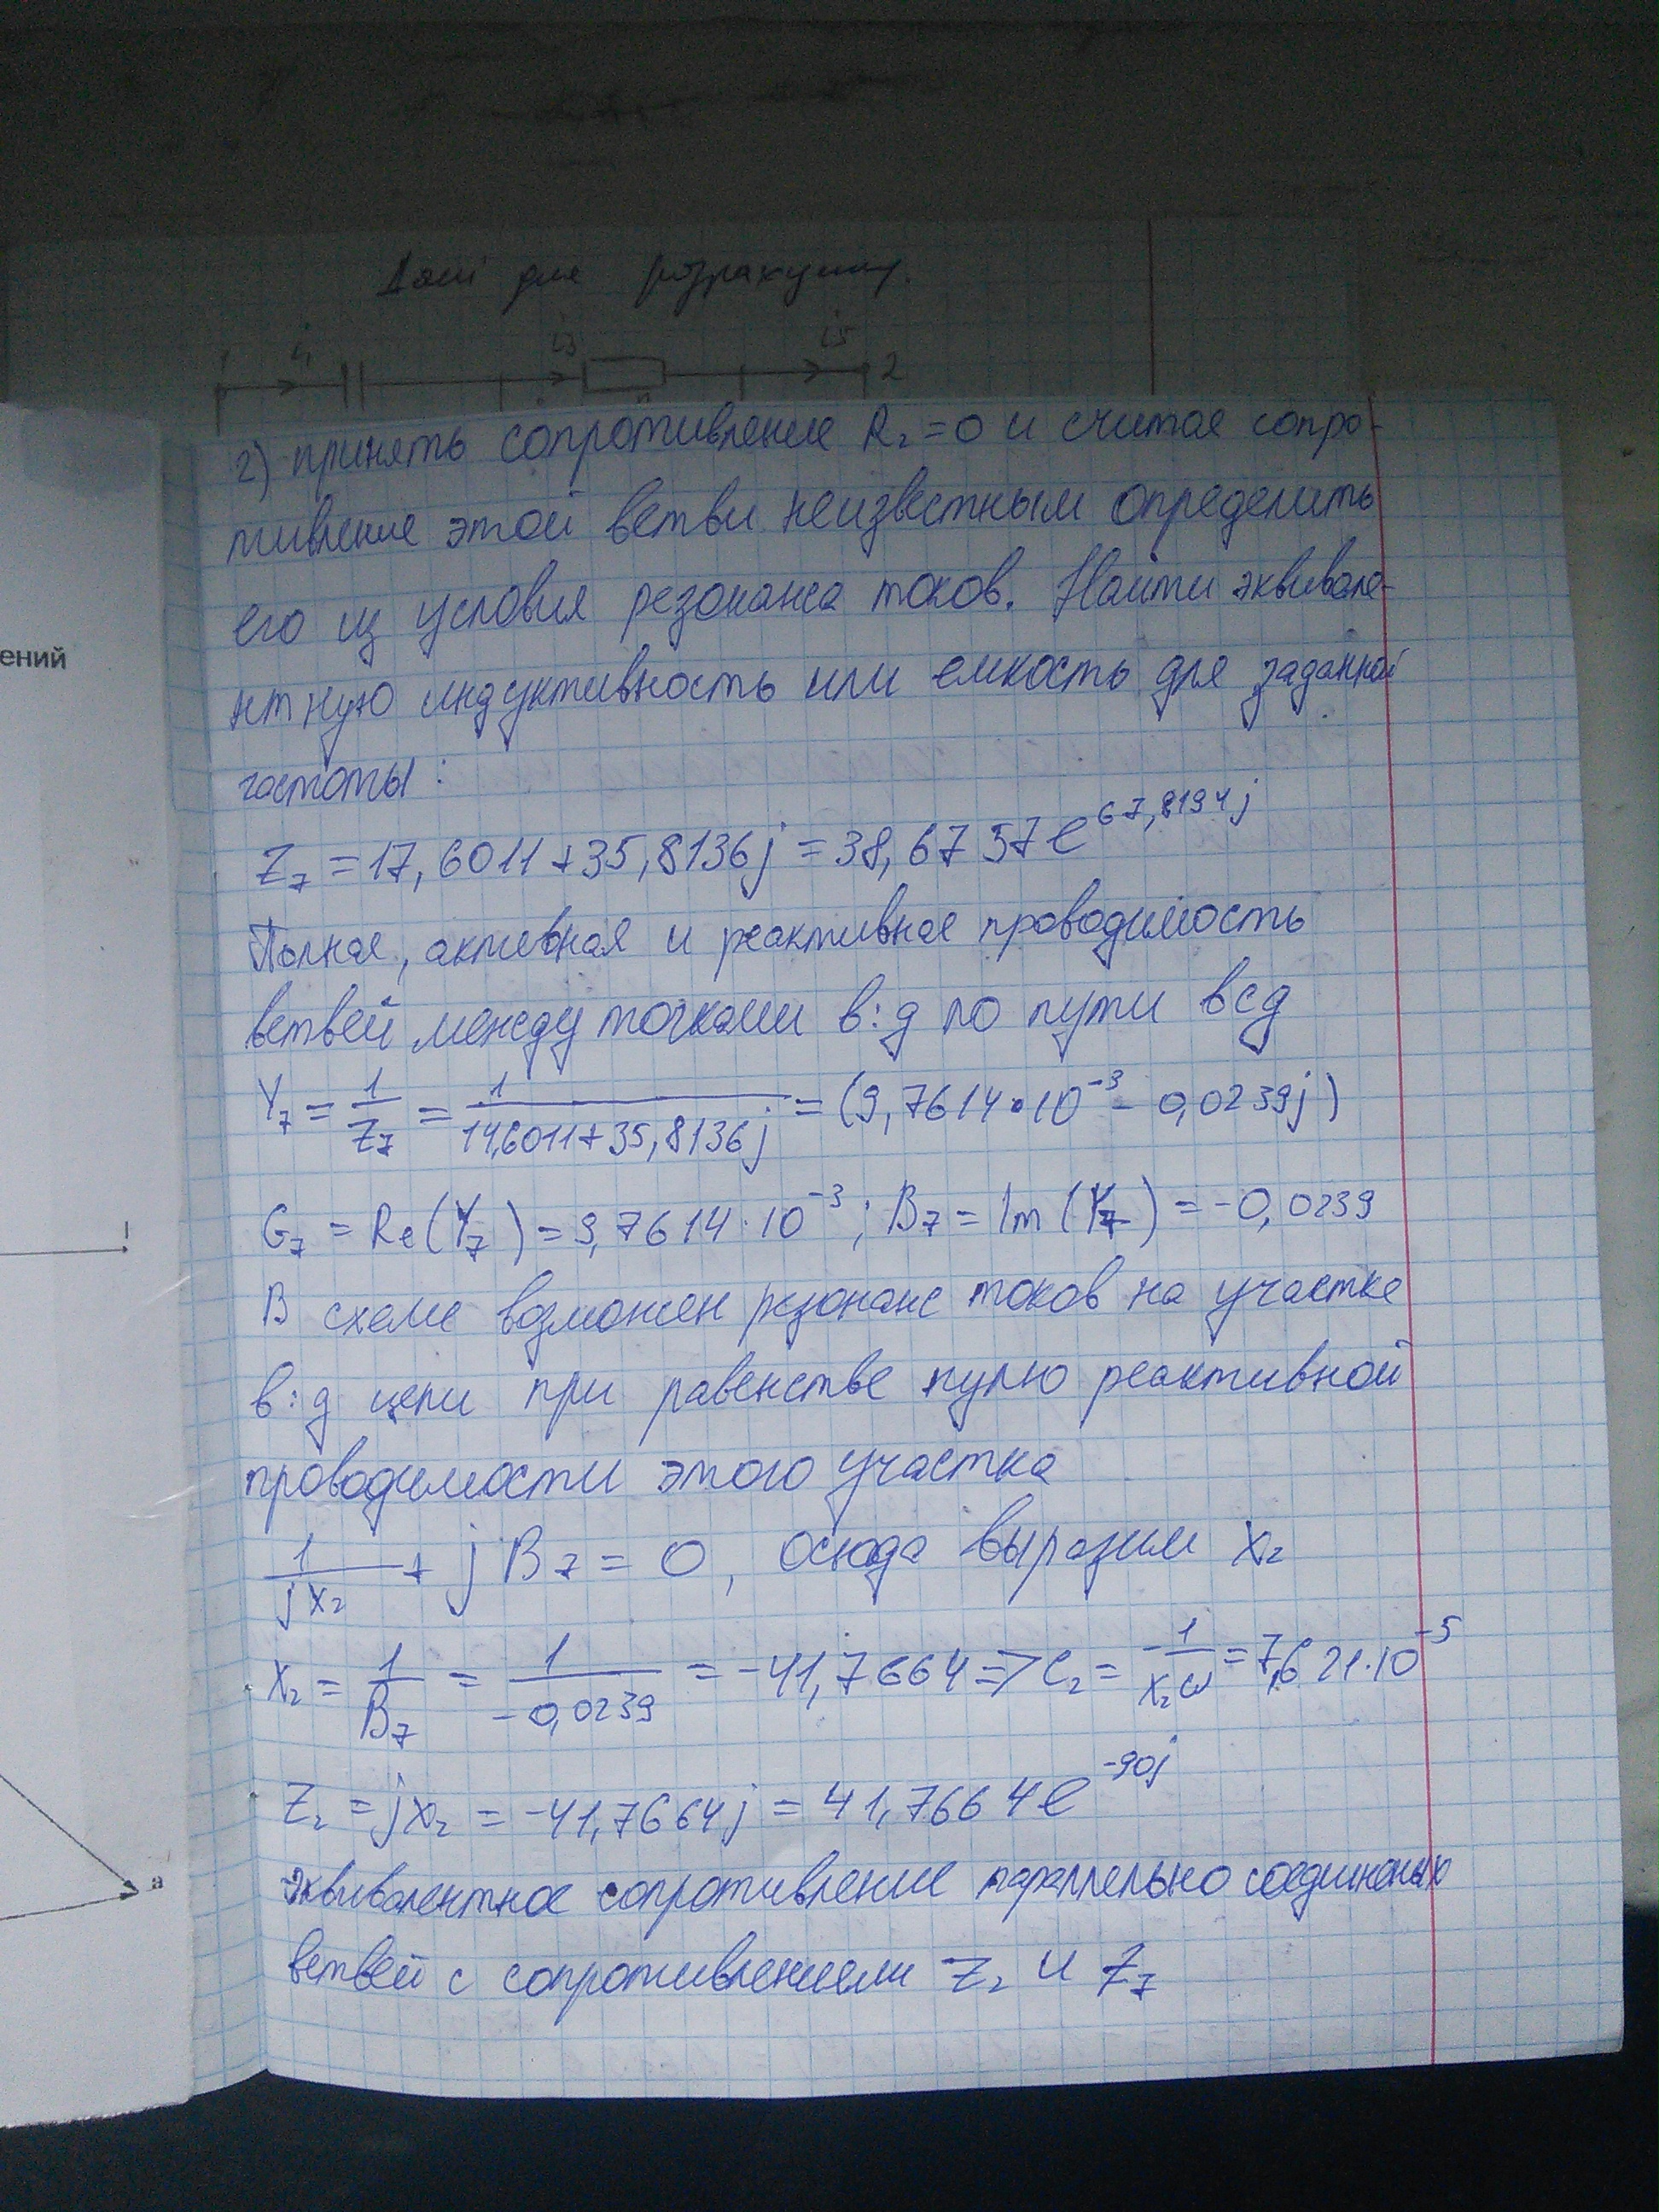 Дані для розрахунку.
1 i1 i3 i5 2
2) принять сопротивление R₂=0 и считая сопро-
тивление этой ветви неизвестным определить
его из условия резонанса токов. Найти эквивале-
нтную индуктивность или емкость для заданной
частоты:
Z₇ = 17,6011+35,8136j = 38,6757e^67,8194j
Полная, активная и реактивная проводимость
ветвей между точками в:д по пути всд
Y₇ = 1/Z₇ = 1/(14,6011+35,8136j) = (9,7614•10⁻³ - 0,0239j)
G₇ = Re(Y₇) = 9,7614·10⁻³; B₇ = Im(Y₇) = -0,0239
В схеме возможен резонанс токов на участке
в:д цепи при равенстве нулю реактивной
проводимости этого участка
1/jx₂ + jB₇ = 0, осюда выразим X₂
X₂ = 1/B₇ = 1/-0,0239 = -41,7664 => C₂ = -1/x₂ω = 7,621·10⁻⁵
Z₂ = jx₂ = -41,7664j = 41,7664e^-90j
Эквивалентное сопротивление параллельно соединеных
ветвей с сопротивлениями Z₂ и Z₇
ений
1
a